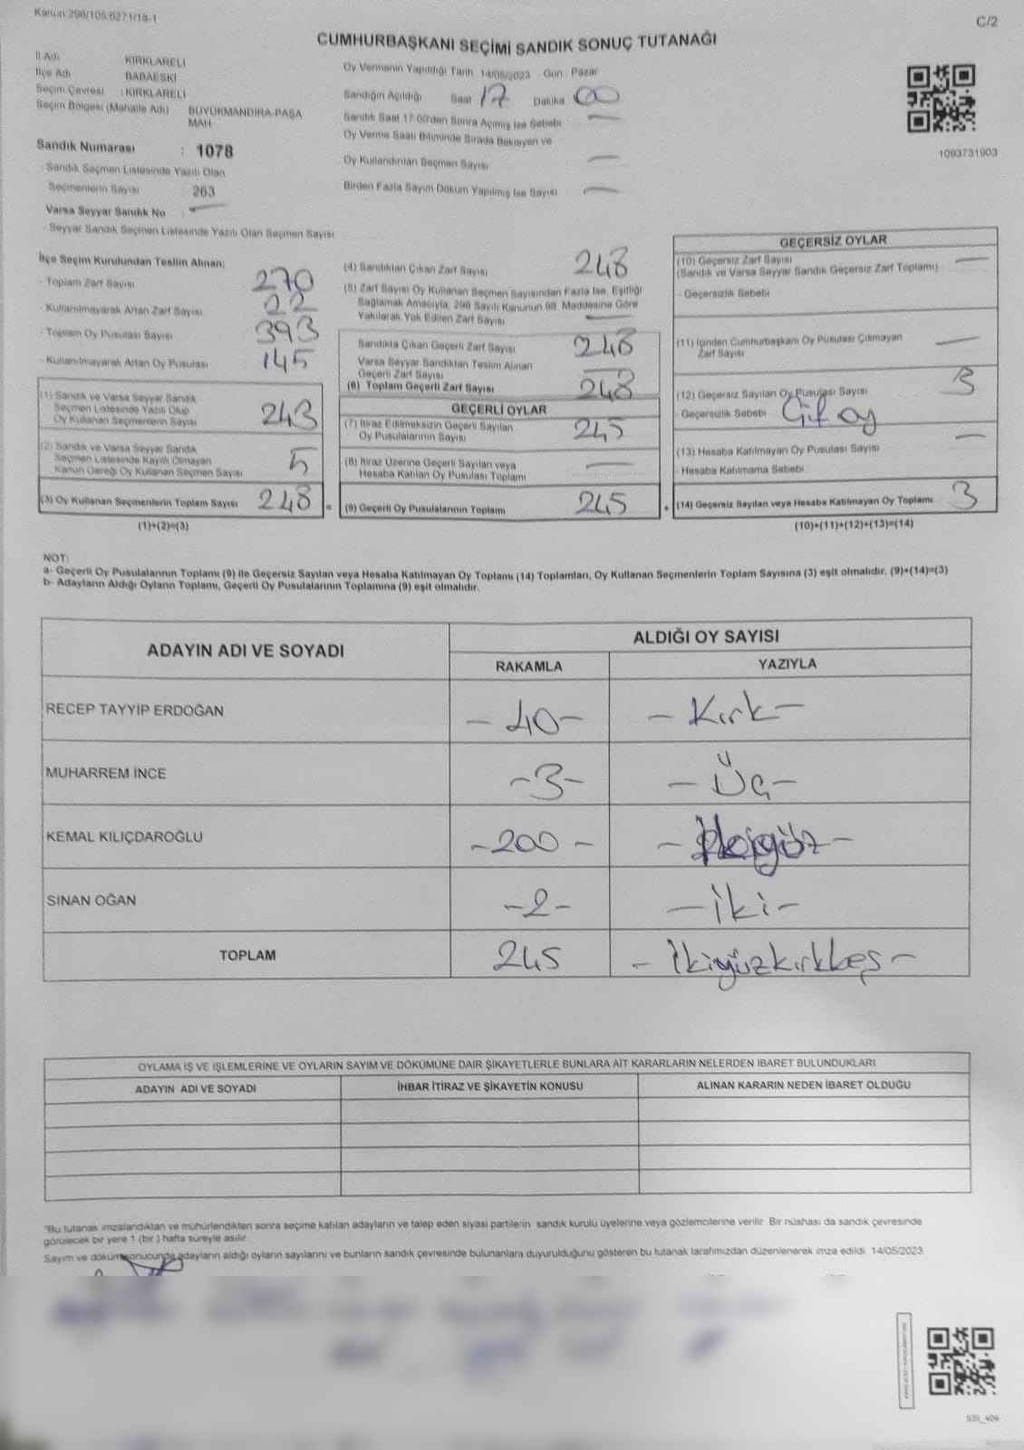 Kanun:298/105,6271/18-1
C/2
CUMHURBAŞKANI SEÇİMİ SANDIK SONUÇ TUTANAĞI
İl Adı : KIRKLARELİ
İlçe Adı : BABAESKİ
Seçim Çevresi : KIRKLARELİ
Seçim Bölgesi (Mahalle Adı) : BÜYÜKMANDIRA-PAŞA MAH.
Sandık Numarası : 1078
- Sandık Seçmen Listesinde Yazılı Olan
Seçmenlerin Sayısı : 263
Varsa Seyyar Sandık No : —
- Seyyar Sandık Seçmen Listesinde Yazılı Olan Seçmen Sayısı
Oy Vermenin Yapıldığı Tarih 14/05/2023 Gün Pazar
Sandığın Açıldığı Saat 17 Dakika 00
Sandık Saat 17:00'den Sonra Açılmış İse Sebebi —
Oy Verme Saati Bitiminde Sırada Bekleyen ve
Oy Kullandırılan Seçmen Sayısı —
Birden Fazla Sayım-Döküm Yapılmış İse Sayısı —
1093731903
İlçe Seçim Kurulundan Teslim Alınan:
- Toplam Zarf Sayısı 270
- Kullanılmayarak Artan Zarf Sayısı 22
- Toplam Oy Pusulası Sayısı 393
- Kullanılmayarak Artan Oy Pusulası 145
(1) Sandık ve Varsa Seyyar Sandık
Seçmen Listesinde Yazılı Olup
Oy Kullanan Seçmenlerin Sayısı 243
(2) Sandık ve Varsa Seyyar Sandık
Seçmen Listesinde Kayıtlı Olmayan
Kanun Gereği Oy Kullanan Seçmen Sayısı 5
(3) Oy Kullanan Seçmenlerin Toplam Sayısı 248 =
(1)+(2)=(3)
(4) Sandıktan Çıkan Zarf Sayısı 248
(5) Zarf Sayısı Oy Kullanan Seçmen Sayısından Fazla İse, Eşitliği
Sağlamak Amacıyla, 298 Sayılı Kanunun 98. Maddesine Göre
Yakılarak Yok Edilen Zarf Sayısı —
Sandıkta Çıkan Geçerli Zarf Sayısı 248
Varsa Seyyar Sandıktan Teslim Alınan
Geçerli Zarf Sayısı —
(6) Toplam Geçerli Zarf Sayısı 248
GEÇERLİ OYLAR
(7) İtiraz Edilmeksizin Geçerli Sayılan
Oy Pusulalarının Sayısı 245
(8) İtiraz Üzerine Geçerli Sayılan veya
Hesaba Katılan Oy Pusulası Toplamı —
(9) Geçerli Oy Pusulalarının Toplamı 245 +
GEÇERSİZ OYLAR
(10) Geçersiz Zarf Sayısı —
(Sandık ve Varsa Seyyar Sandık Geçersiz Zarf Toplamı)
- Geçersizlik Sebebi
(11) İçinden Cumhurbaşkanı Oy Pusulası Çıkmayan
Zarf Sayısı —
(12) Geçersiz Sayılan Oy Pusulası Sayısı 3
- Geçersizlik Sebebi Çift oy
(13) Hesaba Katılmayan Oy Pusulası Sayısı —
- Hesaba Katılmama Sebebi
(14) Geçersiz Sayılan veya Hesaba Katılmayan Oy Toplamı 3
(10)+(11)+(12)+(13)=(14)
NOT:
a- Geçerli Oy Pusulalarının Toplamı (9) ile Geçersiz Sayılan veya Hesaba Katılmayan Oy Toplamı (14) Toplamları, Oy Kullanan Seçmenlerin Toplam Sayısına (3) eşit olmalıdır. (9)+(14)=(3)
b- Adayların Aldığı Oyların Toplamı, Geçerli Oy Pusulalarının Toplamına (9) eşit olmalıdır.
ADAYIN ADI VE SOYADI
ALDIĞI OY SAYISI
RAKAMLA YAZIYLA
RECEP TAYYİP ERDOĞAN - 40 - - Kırk -
MUHARREM İNCE - 3 - - Üç -
KEMAL KILIÇDAROĞLU - 200 -
SİNAN OĞAN - 2 - - İki -
TOPLAM 245 - İkiyüzkırkbeş -
OYLAMA İŞ VE İŞLEMLERİNE VE OYLARIN SAYIM VE DÖKÜMÜNE DAİR ŞİKAYETLERLE BUNLARA AİT KARARLARIN NELERDEN İBARET BULUNDUKLARI
ADAYIN ADI VE SOYADI İHBAR İTİRAZ VE ŞİKAYETİN KONUSU ALINAN KARARIN NEDEN İBARET OLDUĞU
*Bu tutanak imzalandıktan ve mühürlendikten sonra seçime katılan adayların ve talep eden siyasi partilerin sandık kurulu üyelerine veya gözlemcilerine verilir. Bir nüshası da sandık çevresinde
görülecek bir yere 1 (bir) hafta süreyle asılır.
Sayım ve döküm sonucunda adayların aldığı oyların sayılarını ve bunların sandık çevresinde bulunanlara duyurulduğunu gösteren bu tutanak tarafımızdan düzenlenerek imza edildi. 14/05/2023